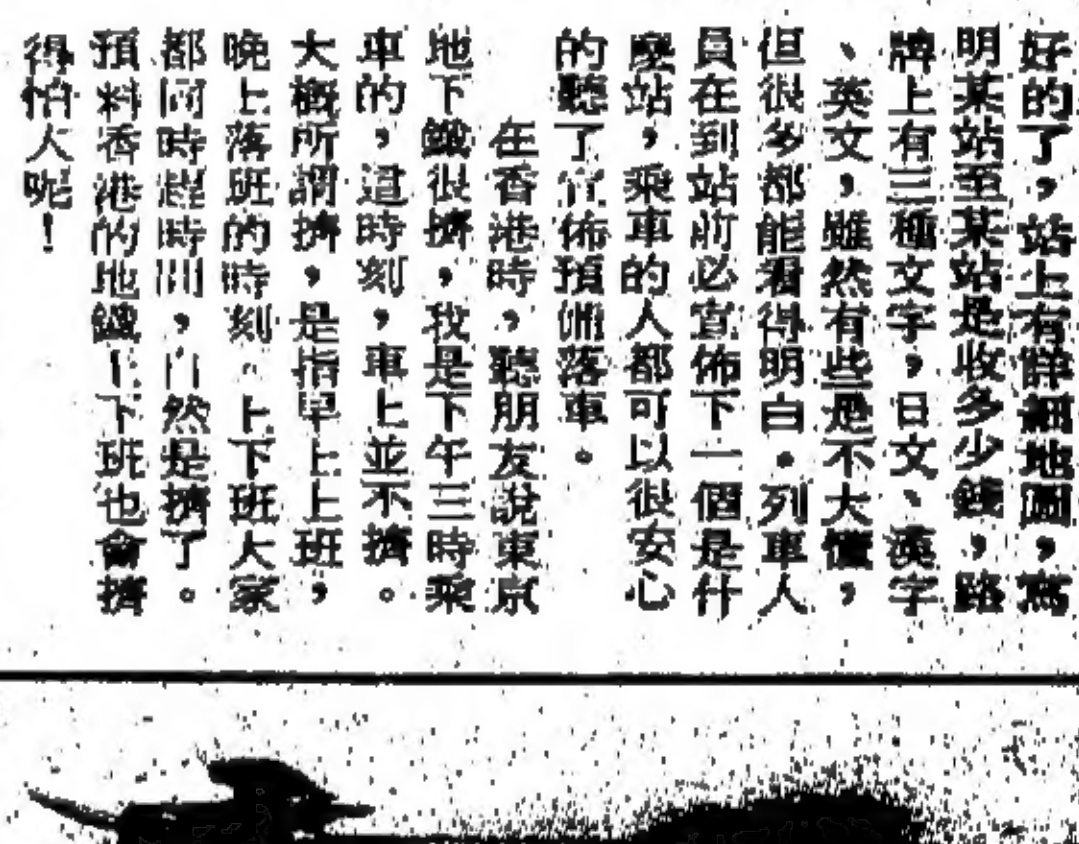 好的了，站上有詳細地圖，寫
明某站至某站是收多少錢，路
牌上有三種文字，日文、漢字
、英文，雖然有些是不大懂，
但很多都能看得明白。列車人
員在到站前必宣佈下一個是什
麼站，乘車的人都可以很安心
的聽了宣佈預備落車。
在香港時，聽朋友說東京
地下鐵很擠，我是下午三時乘
車的，這時刻，車上並不擠。
大概所謂擠，是指早上上班，
晚上落班的時刻。上下班大家
都同時趕時間，自然是擠了。
預料香港的地鐵上下班也會擠
得怕人呢！